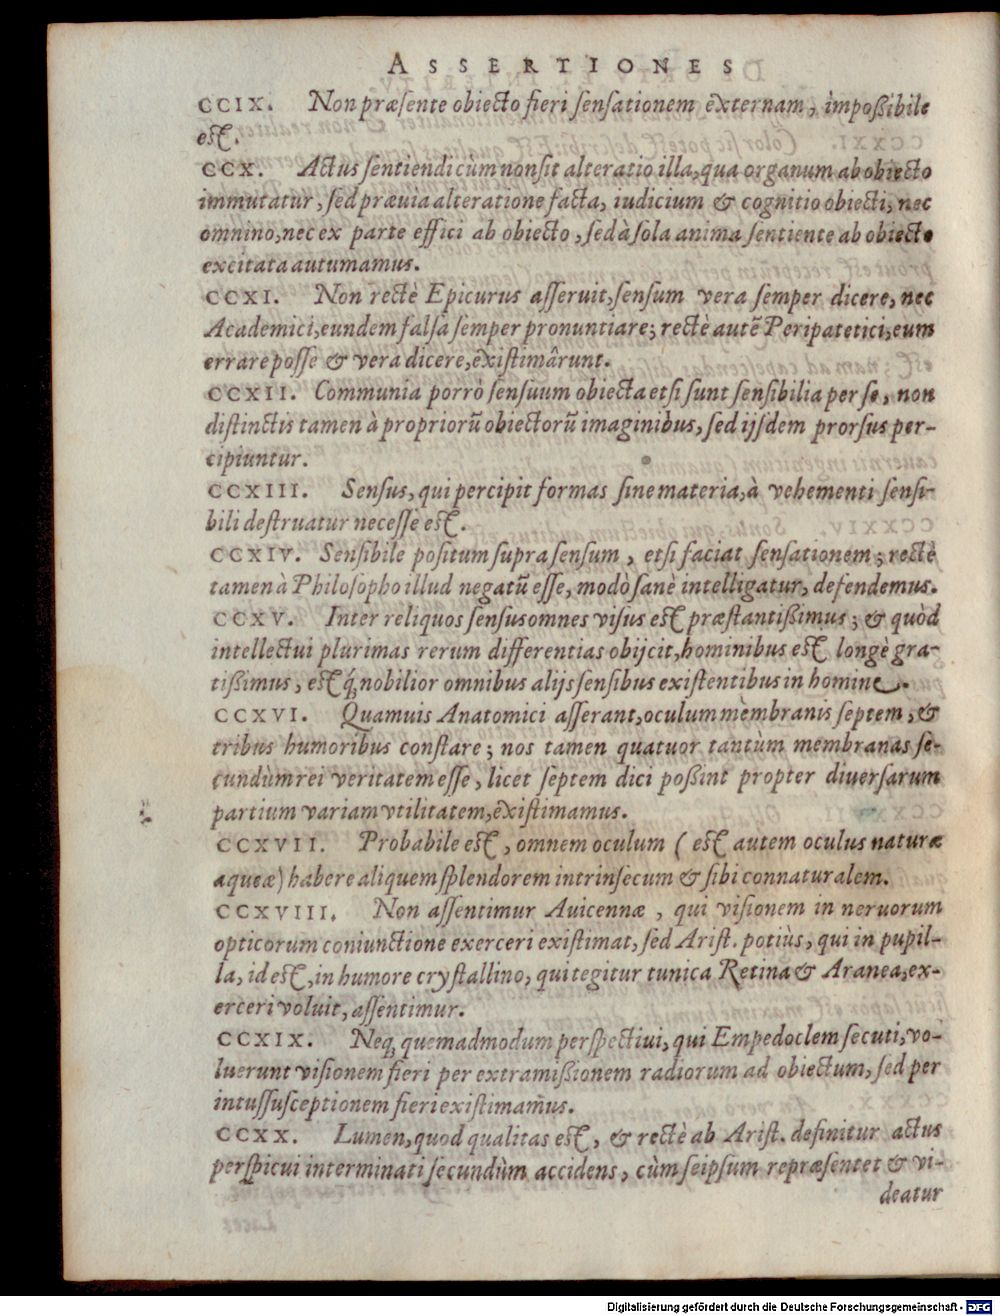 ASSERTIONES
CCIX. Non præsente obiecto fieri sensationem externam, impoßibile
est.
CCX. Actus sentiendi cùm non sit alteratio illa, qua organum ab obiecto
immutatur, sed præuia alteratione facta, iudicium & cognitio obiecti, nec
omnino, nec ex parte effici ab obiecto, sed à sola anima sentiente ab obiecto
excitata autumamus.
CCXI. Non rectè Epicurus asseruit, sensum vera semper dicere, nec
Academici, eundem falsa semper pronuntiare; rectè autē Peripatetici, eum
errare posse & vera dicere, existimârunt.
CCXII. Communia porrò sensuum obiecta etsi sunt sensibilia per se, non
distinctis tamen à propriorū obiectorū imaginibus, sed ijsdem prorsus per-
cipiuntur.
CCXIII. Sensus, qui percipit formas sine materia, à vehementi sensi-
bili destruatur necesse est.
CCXIV. Sensibile positum supra sensum, etsi faciat sensationem; rectè
tamen à Philosopho illud negatū esse, modò sanè intelligatur, defendemus.
CCXV. Inter reliquos sensus omnes visus est præstantißimus; & quòd
intellectui plurimas rerum differentias obijcit, hominibus est longè gra-
tißimus, estq́; nobilior omnibus alijs sensibus existentibus in homine.
CCXVI. Quamuis Anatomici asserant, oculum membranis septem, &
tribus humoribus constare; nos tamen quatuor tantùm membranas se-
cundùm rei veritatem esse, licet septem dici poßint propter diuersarum
partium variam vtilitatem, existimamus.
CCXVII. Probabile est, omnem oculum (est autem oculus naturæ
aqueæ) habere aliquem splendorem intrinsecum & sibi connaturalem.
CCXVIII. Non assentimur Auicennæ, qui visionem in neruorum
opticorum coniunctione exerceri existimat, sed Arist. potiùs, qui in pupil-
la, id est, in humore crystallino, qui tegitur tunica Retina & Aranea, ex-
erceri voluit, assentimur.
CCXIX. Neq; quemadmodum perspectiui, qui Empedoclem secuti, vo-
luerunt visionem fieri per extramißionem radiorum ad obiectum, sed per
intussusceptionem fieri existimam̄us.
CCXX. Lumen, quod qualitas est, & rectè ab Arist. definitur actus
perspicui interminati secundùm accidens, cùm seipsum repræsentet & vi-
deatur
Digitalisierung gefördert durch die Deutsche Forschungsgemeinschaft - DFG